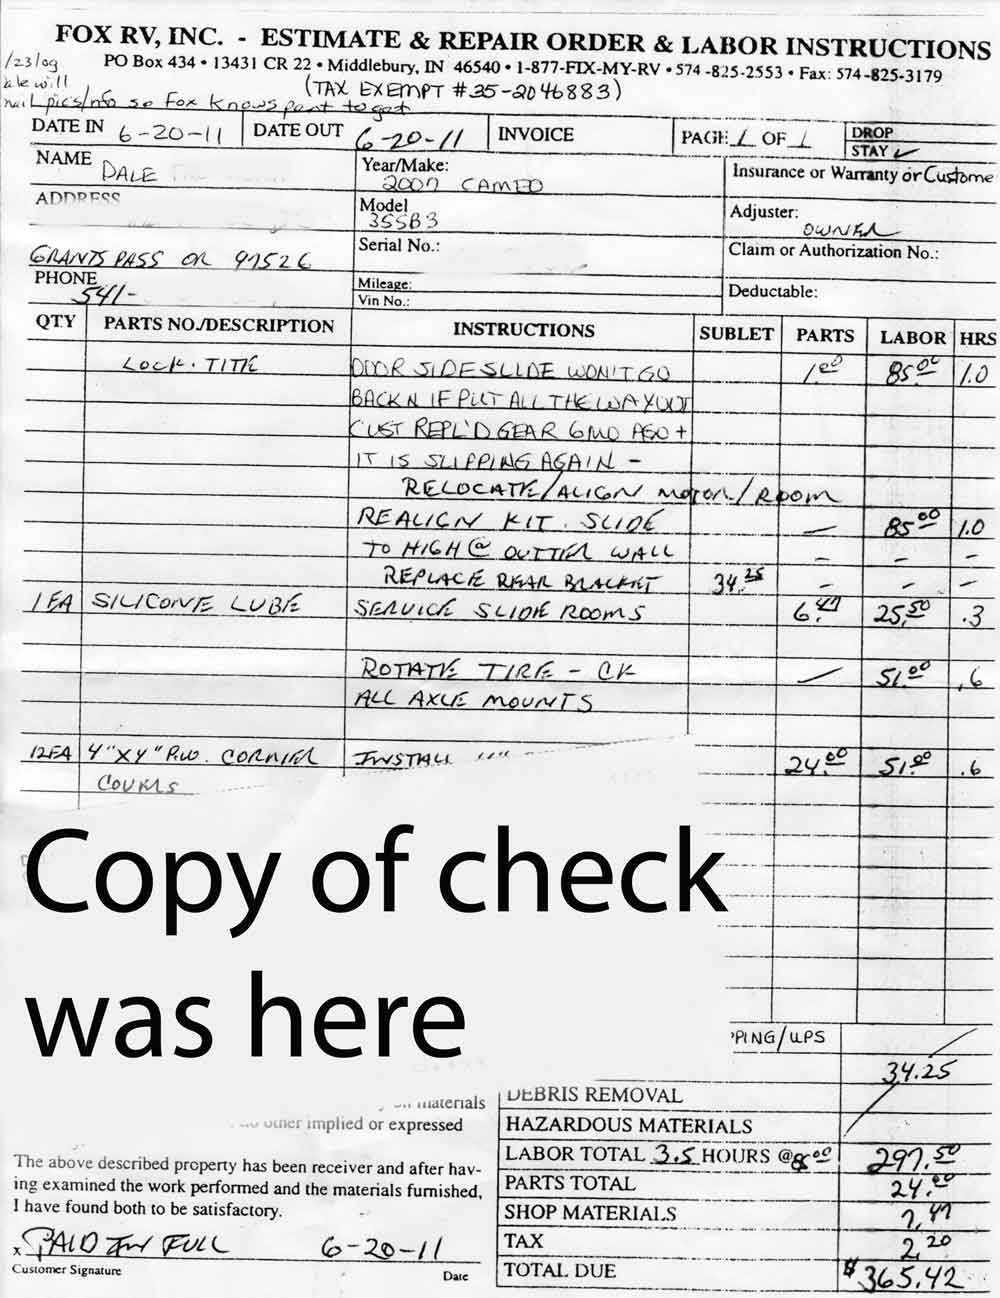 FOX RV, INC. - ESTIMATE & REPAIR ORDER & LABOR INSTRUCTIONS
PO Box 434 • 13431 CR 22 • Middlebury, IN 46540 • 1-877-FIX-MY-RV • 574-825-2553 • Fax: 574-825-3179
/23/09
(TAX EXEMPT #35-2046883)
ale will
pics/info so Fox knows part to get
DATE IN 6-20-11 DATE OUT 6-20-11 INVOICE PAGE 1 OF 1 DROP
STAY ✓
NAME DALE Year/Make: 2007 CAMEO Insurance or Warranty or Custome
ADDRESS Model 35SB3 Adjuster: OWNER
GRANTS PASS OR 97526 Serial No.: Claim or Authorization No.:
PHONE 541- Mileage: Deductable:
Vin No.:
QTY PARTS NO./DESCRIPTION INSTRUCTIONS SUBLET PARTS LABOR HRS
LOCK-TITE DOOR SIDE SLIDE WON'T GO 1.00 85.00 1.0
BACK N IF PUT ALL THE WAY OUT
CUST REPL'D GEAR 6MO AGO +
IT IS SLIPPING AGAIN -
RELOCATE/ALIGN MOTOR/ROOM
REALIGN KIT. SLIDE — 85.00 1.0
TO HIGH @ OUTTER WALL - - -
REPLACE REAR BRACKET 34.25 - - -
1EA SILICONE LUBE SERVICE SLIDE ROOMS 6.47 25.50 .3
ROTATE TIRE - CK — 51.00 .6
ALL AXLE MOUNTS
12EA 4"X4" P.W. CORNER INSTALL """ 24.00 51.00 .6
COVERS
Copy of check
was here
PPING/UPS
34.25
materials
other implied or expressed
DEBRIS REMOVAL
HAZARDOUS MATERIALS
LABOR TOTAL 3.5 HOURS @85.00 297.50
The above described property has been receiver and after hav-
ing examined the work performed and the materials furnished,
I have found both to be satisfactory.
PARTS TOTAL 24.00
SHOP MATERIALS 7.47
TAX 2.20
TOTAL DUE $365.42
x PAID IN FULL 6-20-11
Customer Signature Date